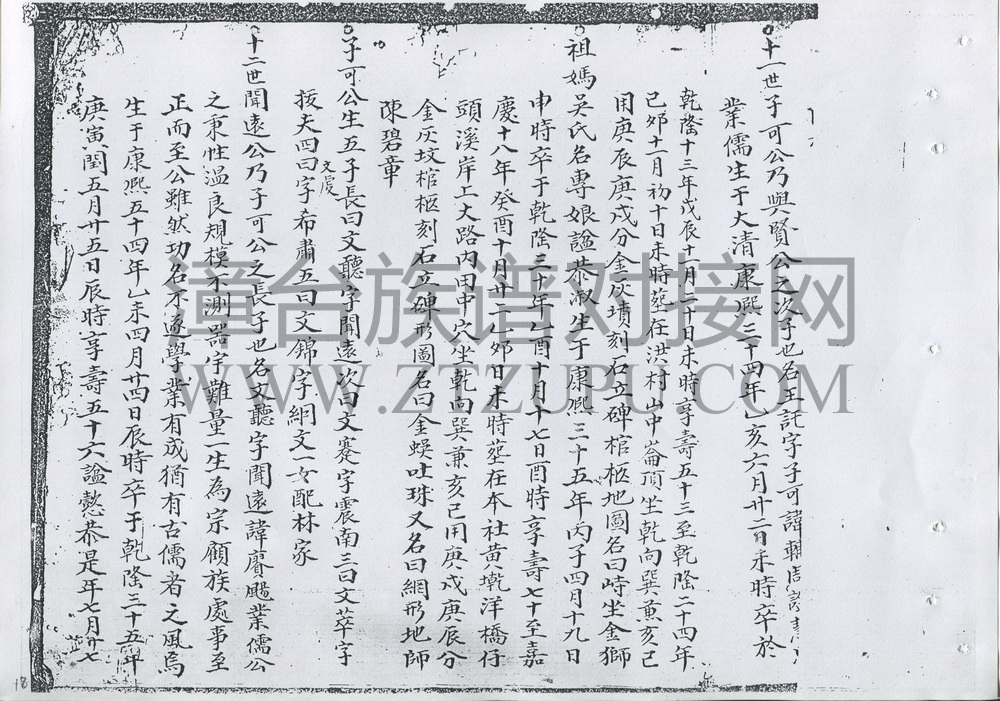 十一世子可公乃與賢公之次子也名王託字子可諱
業儒生于大清康熙三十四年乙亥六月廿二日未時卒於
乾隆十三年戊辰十一月二十日未時享壽五十三至乾隆二十四年
己夘十一月初十日未時塟在洪村山中崙頂坐乾向巽兼亥己
用庚辰庚戌分金灰墳刻石立碑棺柩地圖名曰峙坐金獅
祖媽吳氏名專娘諡恭淑生于康熙三十五年丙子四月十九日
申時卒于乾隆三十年乙酉十月十七日酉時享壽七十至嘉
慶十八年癸酉十月廿一乙夘日未時塟在本社黄墘洋橋仔
頭溪岸工大路内田中穴坐乾向巽兼亥己用庚戌庚辰分
金灰坟棺柩刻石立碑形圖名曰金蜈吐珠又名曰網形地師
陳碧章
子可公生五子長曰文聽字聞遠次曰文蹇字震南三曰文萃字
拔夫四曰文虔字希肅五曰文錦字網文一女配林家
十二世聞遠公乃子可公之長子也名文聽字聞遠諱賡颺業儒公
之秉性温良規模不測器宇難量一生為宗顧族處事至
正而至公雖然功名不遂學業有成猶有古儒者之風焉
生于康熙五十四年乙未四月廿四日辰時卒于乾隆三十五年
庚寅閏五月廿五日辰時享壽五十六諡懿恭是年七月廿七
漳台族谱对接网
WWW.ZTZUPU.COM
18